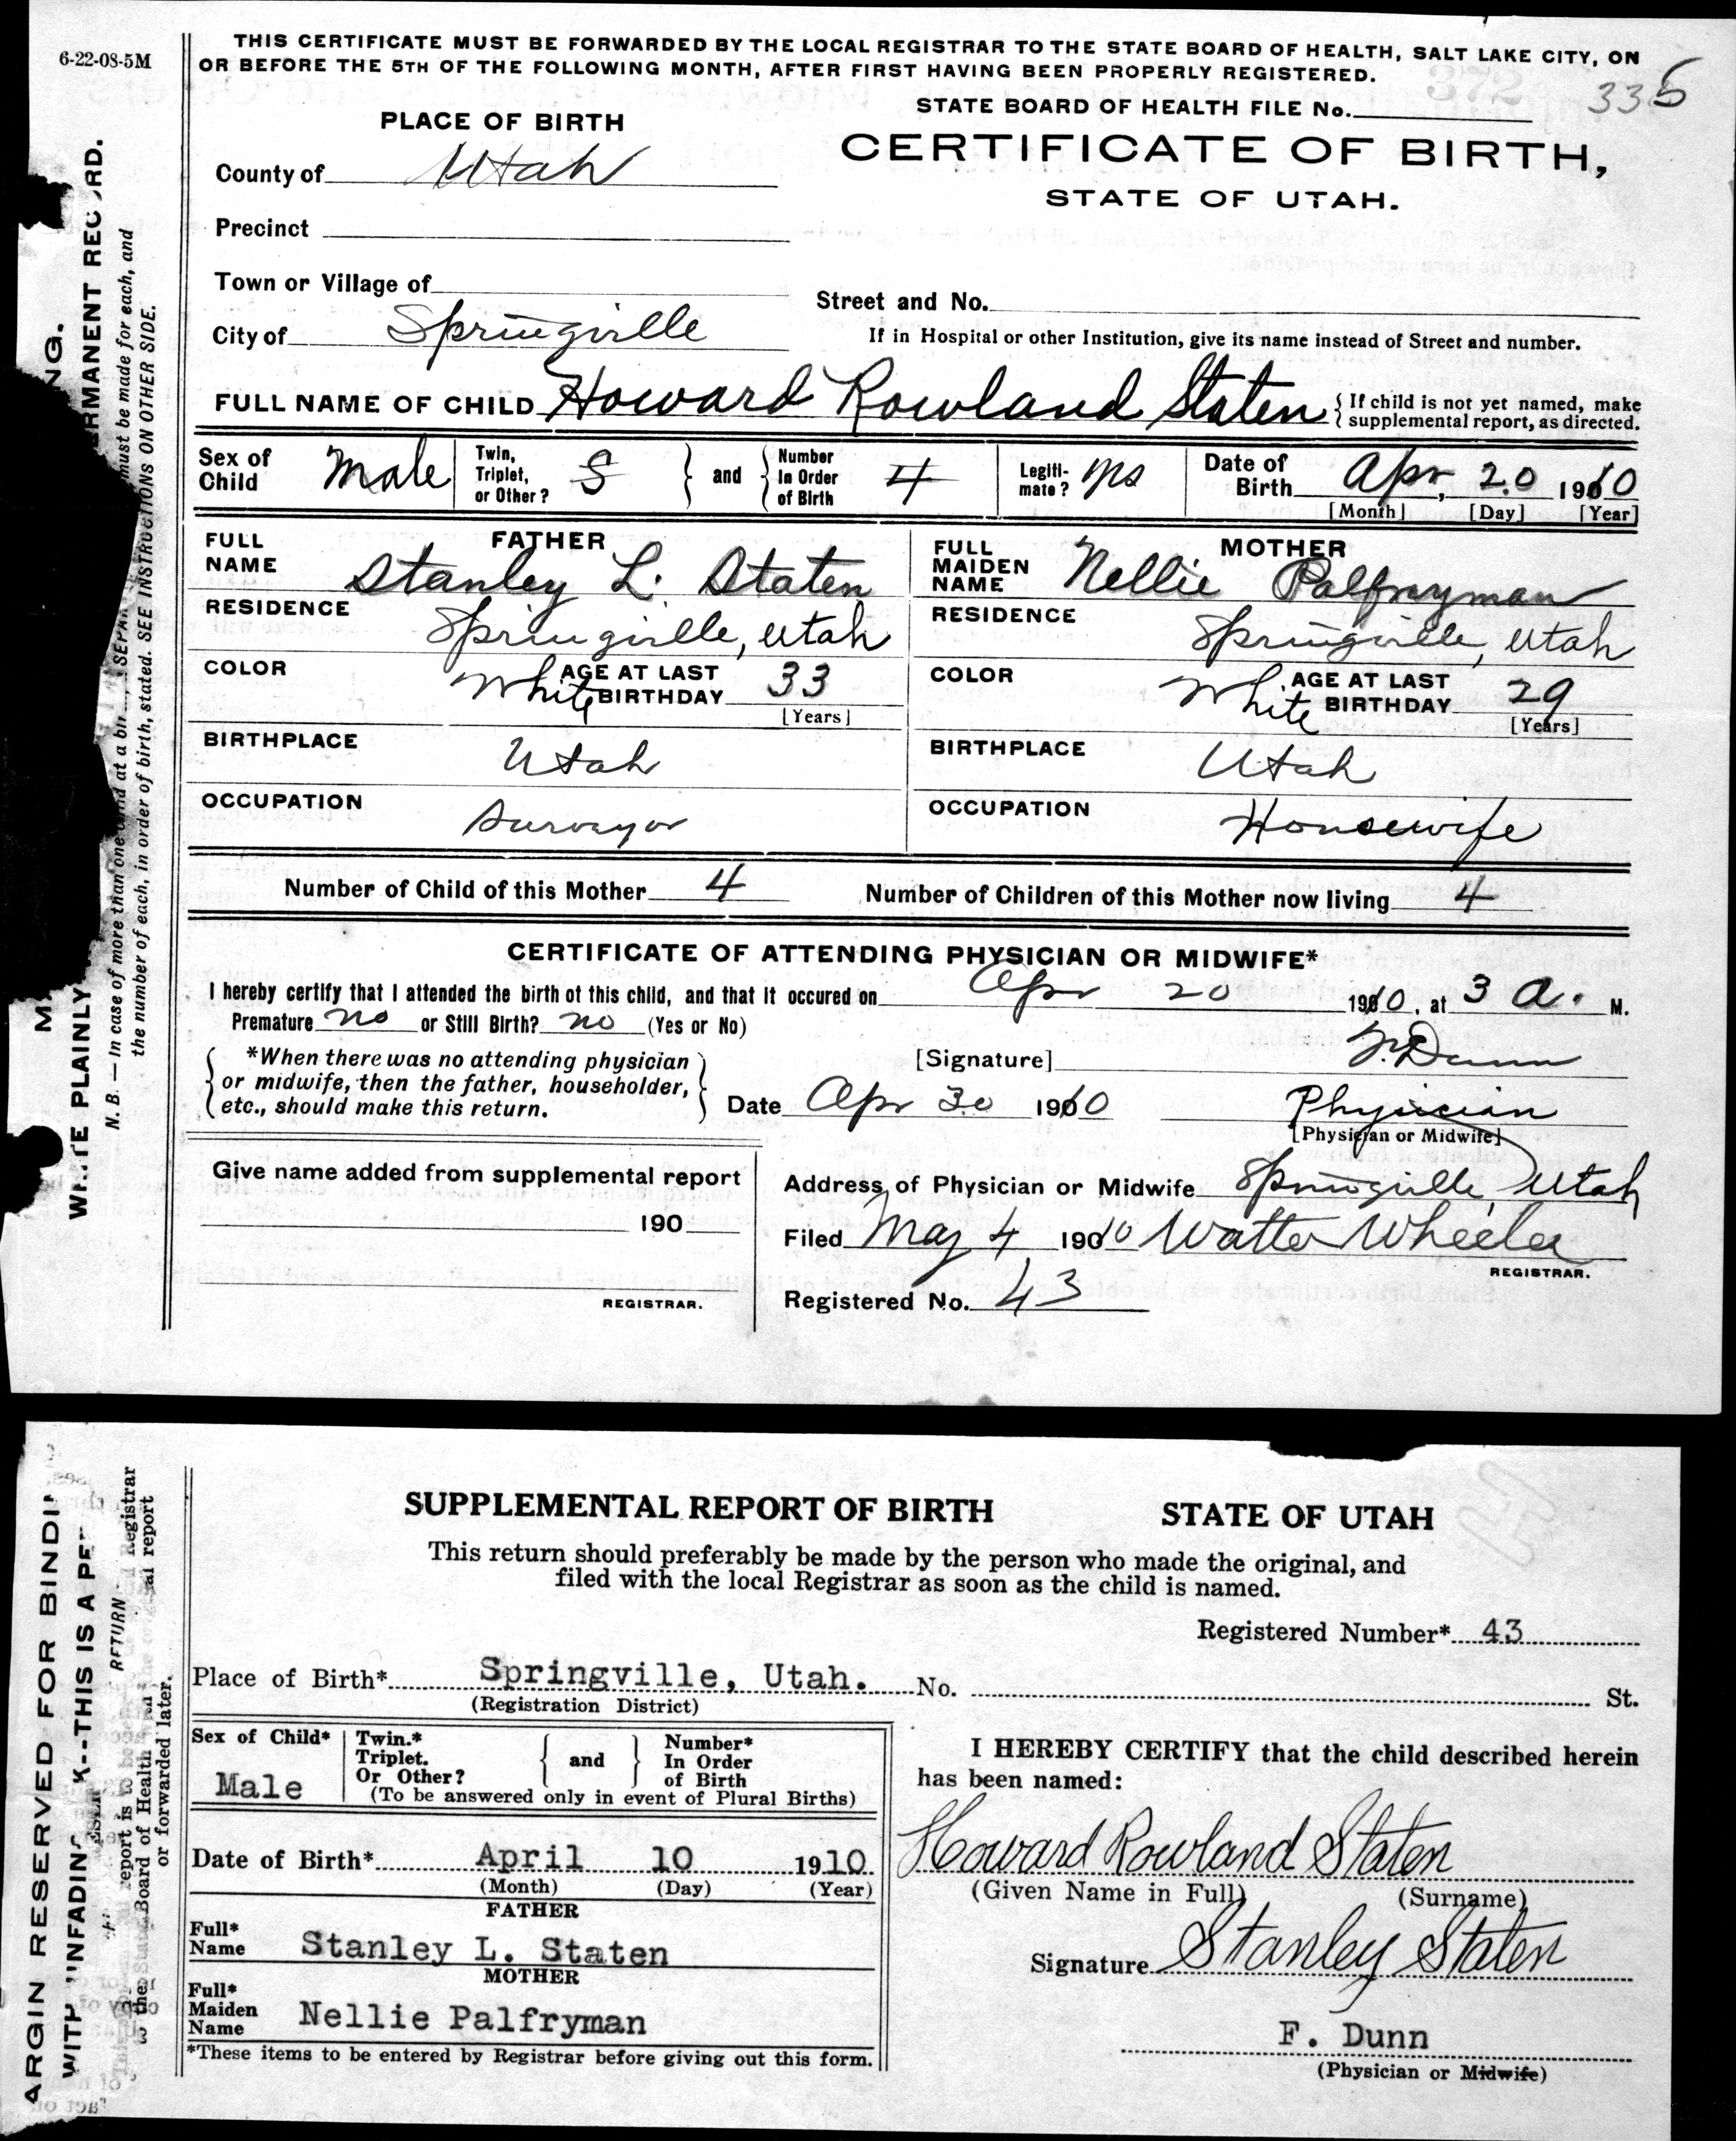 6-22-08-5M
THIS CERTIFICATE MUST BE FORWARDED BY THE LOCAL REGISTRAR TO THE STATE BOARD OF HEALTH, SALT LAKE CITY, ON
OR BEFORE THE 5TH OF THE FOLLOWING MONTH, AFTER FIRST HAVING BEEN PROPERLY REGISTERED.
372
335
STATE BOARD OF HEALTH FILE No.
PLACE OF BIRTH
CERTIFICATE OF BIRTH,
County of Utah
STATE OF UTAH.
Precinct
Town or Village of
Street and No.
City of Springville
If in Hospital or other Institution, give its name instead of Street and number.
FULL NAME OF CHILD Howard Rowland Staten { If child is not yet named, make
supplemental report, as directed.
Sex of Child Male Twin, Triplet, or Other? S } and { Number In Order of Birth 4 Legiti-mate? Date of Birth Apr, 20 1910
[Month] [Day] [Year]
FATHER
FULL NAME Stanley L. Staten
RESIDENCE Springville, Utah
COLOR White AGE AT LAST BIRTHDAY 33
[Years]
BIRTHPLACE Utah
OCCUPATION Surveyor
MOTHER
FULL MAIDEN NAME Nellie Palfreyman
RESIDENCE Springville, Utah
COLOR White AGE AT LAST BIRTHDAY 29
[Years]
BIRTHPLACE Utah
OCCUPATION Housewife
Number of Child of this Mother 4 Number of Children of this Mother now living 4
CERTIFICATE OF ATTENDING PHYSICIAN OR MIDWIFE*
I hereby certify that I attended the birth of this child, and that it occured on Apr 20 1910, at 3 a. M.
Premature no or Still Birth? no (Yes or No)
*When there was no attending physician
or midwife, then the father, householder,
etc., should make this return.
[Signature] F. Dunn
Date Apr 30 1910 Physician
[Physician or Midwife]
Give name added from supplemental report
190
REGISTRAR.
Address of Physician or Midwife Springville, Utah
Filed May 4 1910 Walter Wheeler
REGISTRAR.
Registered No. 43
WRITE PLAINLY
ERMANENT RECORD.
N. B. — In case of more than one child at a bir SEPAR must be made for each, and
the number of each, in order of birth, stated. SEE INSTRUCTIONS ON OTHER SIDE.
SUPPLEMENTAL REPORT OF BIRTH STATE OF UTAH
This return should preferably be made by the person who made the original, and
filed with the local Registrar as soon as the child is named.
Registered Number* 43
Place of Birth* Springville, Utah. No. St.
(Registration District)
Sex of Child* Male Twin.* Triplet. Or Other? { and } Number* In Order of Birth
(To be answered only in event of Plural Births)
Date of Birth* April 10 1910
(Month) (Day) (Year)
FATHER
Full* Name Stanley L. Staten
MOTHER
Full* Maiden Name Nellie Palfryman
*These items to be entered by Registrar before giving out this form.
I HEREBY CERTIFY that the child described herein
has been named:
Howard Rowland Staten
(Given Name in Full) (Surname)
Signature Stanley Staten
F. Dunn
(Physician or Midwife)
ARGIN RESERVED FOR BINDIN
WITH UNFADING K--THIS IS A PE
RETURN Registrar
report is to be
Board of Health
or forwarded later.